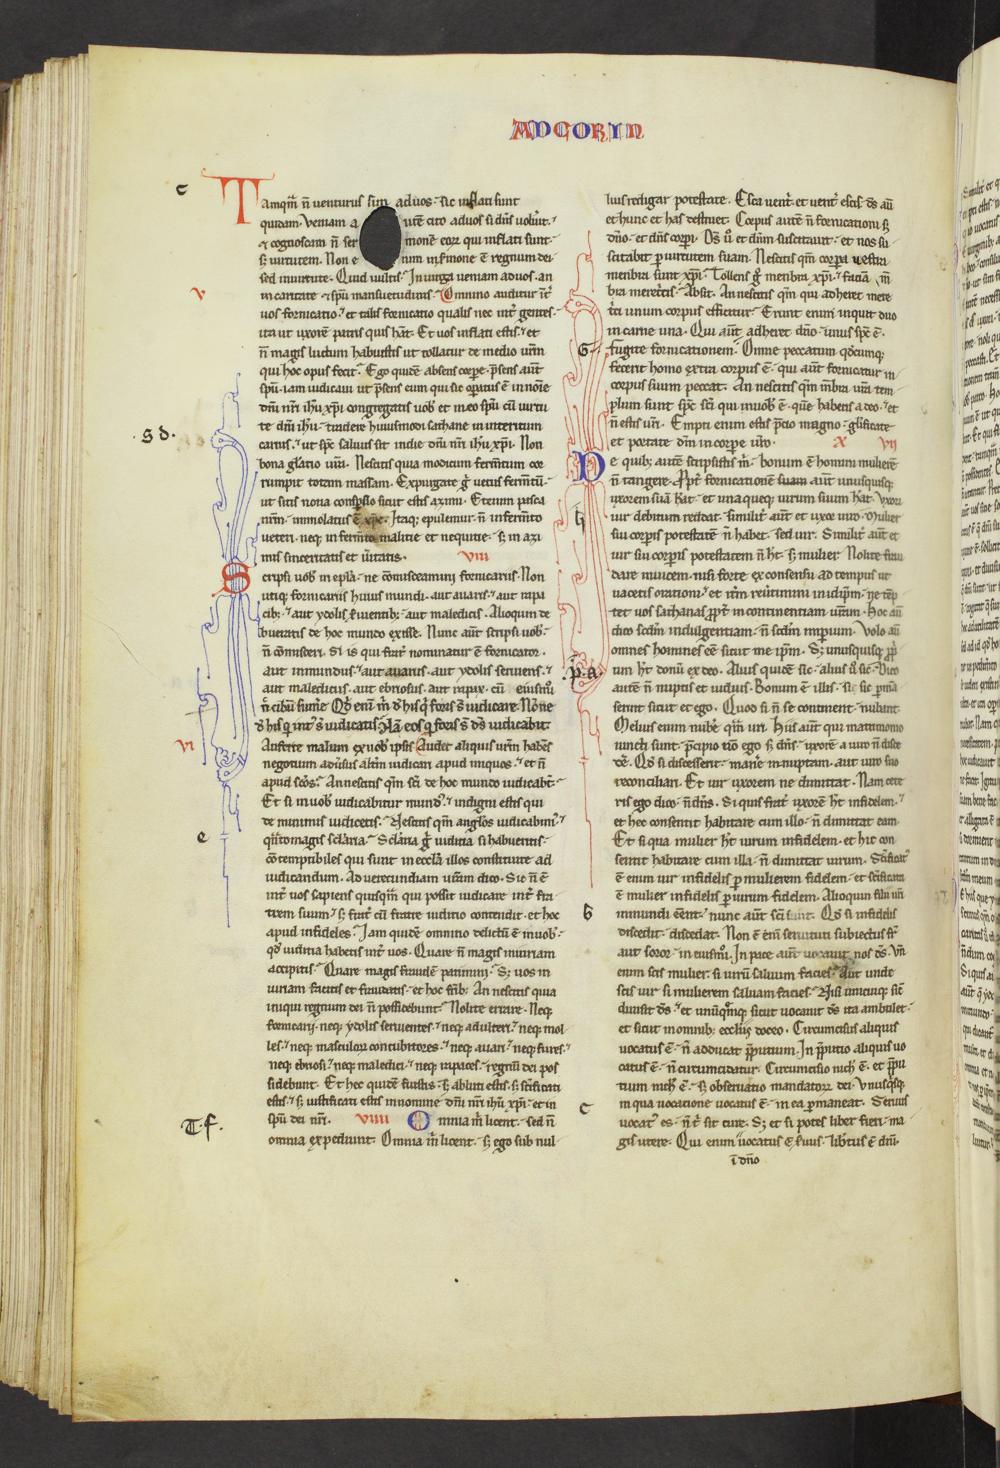 AD CORIN
c
Tamq̄ȝ n̄ venturus sim ad uos. sic inflati sunt
quidam. veniam a utē cito ad uos si dn̄s uolūit.
⁊ cognoscam n̄ ser monē eoꝝ qui inflati sunt.
sꝫ uirtutem. Non e nim in sermone ē regnum dei
sed in uirtute. Quid uultis? In uirga ueniam ad uos. an
v
in caritate ⁊ sp̄u mansuetudinis? Omnino auditur int̄
uos fornicatio. et talis fornicatio qualis nec int̄ gentes.
ita ut uxorē patris quis hāt. Et uos inflati estis. et
n̄ magis luctum habuistis ut tollatur de medio ur̄m
qui hoc opus fecit. Ego quidē absens corpe. p̄sens aūt
spū. iam iudicaui ut p̄sens eum qui sic opatus ē in noīe
dn̄i nr̄i ih̄u xp̄i congregatis uob̄ et meo spū cū uirtu
S d.
te dn̄i ih̄u. tradere huiusmodi sathane in interitum
carnis. ut spc̄ saluus sit in die dn̄i nr̄i ih̄u xp̄i. Non
bona gl̄atio ur̄a. Nescitis quia modicum fermtum cor
rumpit totam massam. Expurgate ḡ uetus fermtū.
ut sitis noua conspsio sicut estis azimi. Etenim pasca
nr̄m. immolatus ē xp̄c. Itaqꝫ epulemur. n̄ in fermto
ueteri. neqꝫ in fermto malitie et nequitie. sꝫ in azi
mis sinceritatis et ūitatis. viii
Scripsi uob̄ in epl̄a. ne cōmisceamini fornicariis. Non
utiqꝫ fornicariis huius mundi. aut auaris. aut rapa
cibꝫ. aut ydolis seruientibꝫ. aut maledicis. Alioquin de
bueratis de hoc mundo exisse. Nunc aūt scripsi uob̄.
n̄ cōmisceri. Si is qui frat̄ nominatur ē fornicator.
aut inmundus. aut auarus. aut ydolis seruiens.
aut maledicus. aut ebriosus. aut rapax. cū eiusmō
n̄ cibū sumē. Qd̄ enī m̄ d̄ his q̄ foris s̄ iudicare. None
d̄ his q̄ int̄ s̄ iudicatis. Nā eos q̄ foris s̄ ds̄ iudicabit.
vi
Auferte malum ex uob̄ ipsis. Audet aliquis ur̄m habēs
negotium aduͤsus altm̄ iudicari apud iniquos. et n̄
apud scōs? An nescitis qm̄ sc̄i de hoc mundo iudicabt̄?
Et si in uob̄ iudicabitur mundꝰ. indigni estis qui
de minimis iudicetis? Nescitis qm̄ angl̄os iudicabimꝰ?
e
q̄ntomagis sclaria? Sclaria ḡ iudicia si habueritis.
cōtemptibiles qui sunt in eccl̄a illos constituite ad
iudicandum. Ad uerecundiam ur̄am dico. Sic n̄ ē
int̄ uos sapiens quisq̄m qui possit iudicare int̄ fra
trem suum? sꝫ frat̄ cū fratre iuditio contendit. et hoc
apud infideles? Iam quidē omnino delictū ē in uob̄.
qd̄ iuditia habetis int̄ uos. Quare n̄ magis iniuriam
accipitis? Quare magis fraudē patimini? Sꝫ uos in
iuriam facitis et fraudatis. et hoc fr̄ibꝫ. An nescitis quia
iniqui regnum dei n̄ possidebunt? Nolite errare. Neqꝫ
fornicarij. neqꝫ ydolis seruientes. neqꝫ adulteri. neqꝫ mol
les. neqꝫ masculoꝝ concubitores. neqꝫ auari. neqꝫ fures.
neqꝫ ebriosi. neqꝫ maledici. neqꝫ rapaces. regnū dei pos
sidebunt. Et hec quidē fuistis. sꝫ abluti estis. sꝫ sc̄ificati
estis. sꝫ iustificati estis in nomine dn̄i nr̄i ih̄u xp̄i. et in
T. f.
spū dei nr̄i. viiii Omnia m̄ licent. sed n̄
omnia expediunt. Omnia m̄ licent. sꝫ ego sub nul
lius redigar potestate. Esca uent̄. et uent̄ escis. ds̄ aū
et hunc et has destruet. Corpus autē n̄ fornicationi sꝫ
dn̄o. et dn̄s corpi. Ds̄ ū et dn̄m suscitauit. et nos su
scitabit p uirtutem suam. Nescitis qm̄ corpa uestra
menbra sunt xp̄i? Tollens ḡ menbra xp̄i. faciā m̄
bra meretcis? Absit. An nescitis qm̄ qui adheret mere
tci unum corpus efficitur? Erunt enim inquit duo
in carne una. Qui aūt adheret dn̄o. unus spc̄ ē.
G
fugite fornicationem. Omne peccatum qdcumqꝫ
fecerit homo extra corpus ē. qui aūt fornicatur in
corpus suum peccat. An nescitis qm̄ m̄bra ur̄a tem
plum sunt spc̄ sc̄i qui in uob̄ ē. que habetis a deo. et
n̄ estis ur̄i. Empti enim estis p̄cio magno. gl̄ificate
et portate dm̄ in corpe uro. x vii
De quibꝫ autē scripsistis m̄. bonum ē homini mulierē
n̄ tangere. Ppt̄ fornicationē suam aūt unusquisqꝫ
uxorem suā hāt. et unaqueqꝫ uirum suum hāt. Vxori
h
uir debitum reddat. similit̄ aūt et uxor uiro. Mulier
sui corpis potestatē n̄ habet. sed uir. Similit̄ aūt et
uir sui corpis potestatem n̄ ht̄. sꝫ mulier. Nolite frau
dare inuicem. nisi forte ex consensu ad tempus ut
uacetis orationi. et it̄m reutimini in idipm̄. ne temp
tet uos sathanas ppt̄ incontinentiam ur̄am. Hoc aū
dico scdm̄ indulgentiam. n̄ scdm̄ impium. Volo aū
omnes homines ēē sicut me ipm̄. Sꝫ unusquisqꝫ ppr̄
p. a.
um ht̄ donū ex deo. Alius quidē sic. alius ū sic. Dico
autē n̄ nuptis et uiduis. Bonum ē illis. si sic pma
serint sicut et ego. Quod si n̄ se continent. nubant.
Melius enim nubē. qm̄ uri. Hiis aūt qui matrimonio
iuncti sunt. p̄cipio nō ego sꝫ dn̄s. uxorē a uiro n̄ disce
dē. Qd̄ si discesserit. manē innuptam. aut uiro suo
reconciliari. Et uir uxorem ne dimittat. Nam cete
ris ego dico. n̄ dn̄s. Si quis frat̄ uxorē ht̄ infidelem.
et hec consentit habitare cum illo. n̄ dimittat eam.
Et si qua mulier ht̄ uirum infidelem. et hic con
sentit habitare cum illa. n̄ dimittat uirum. Sc̄ificatꝰ
ē enim uir infidelis p mulierem fidelem. et sc̄ificata
ē mulier infidelis p uirum fidelem. Alioquin filii ur̄i
b
inmundi eēnt. nunc aūt sc̄i sunt. Qd̄ si infidelis
discedit. discedat. Non ē enī seruituti subiectus fr̄
aut soror in eiusmō. In pace aūt uocauit nos ds̄. Vn̄
enim scis mulier. si uirū saluum facies? Aut unde
scis uir si mulierem saluam facies? Nisi unicuiqꝫ sic̄
diuisit ds̄. et unūqmqꝫ sicut uocauit ds̄ ita ambulet.
et sicut in omnibꝫ eccl̄iis doceo. Circumcisus aliquis
uocatus ē. n̄ adducat pputium. In pputio aliquis uo
catus ē. n̄ circumcidatur. Circumcisio nich̄ ē. et ppu
tium nich̄ ē. sꝫ obseruatio mandatoꝝ dei. Vnusqsqꝫ
c
in qua uocatione uocatus ē. in ea pmaneat. Seruus
uocatꝰ es. n̄ t̄ sit cure. Sꝫ et si potes liber fieri. ma
gis utere. Qui enim uocatus ē seruus. libtus ē dn̄i.
ī dn̄o